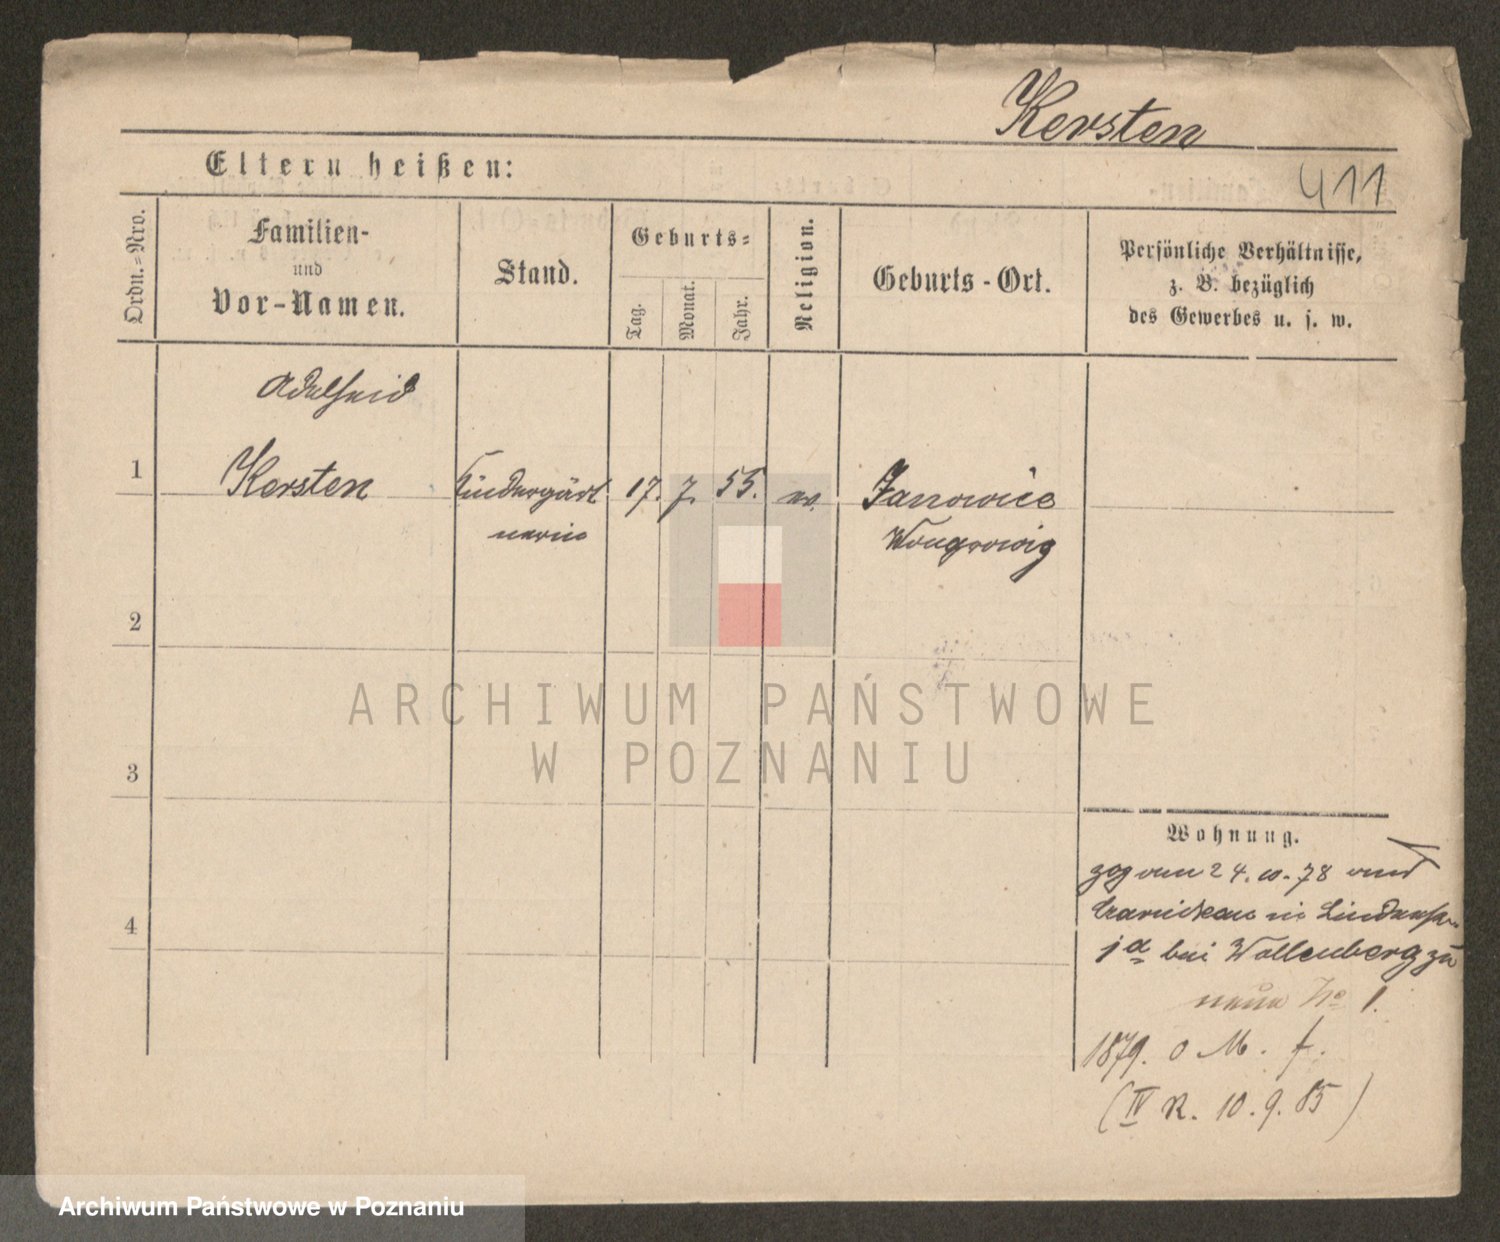 Kersten
Eltern heißen:
411
Ordn.=Nro.
Familien-
und
Vor-Namen.
Stand.
Geburts=
Tag.
Monat.
Jahr.
Religion.
Geburts-Ort.
Persönliche Verhältnisse,
z. B. bezüglich
des Gewerbes u. s. w.
Adelheid
1
Kersten
Kindergärt
17. 7. 55.
ev.
Janowice
nerin
Wongrowig
2
ARCHIWUM PAŃSTWOWE
W POZNANIU
3
Wohnung.
zog am 24. 10. 78 von
Czarnikau in
1a bei Wollenberg zu
neue No 1.
1879. o M. f.
(IV R. 10. 9. 85)
4
Archiwum Państwowe w Poznaniu